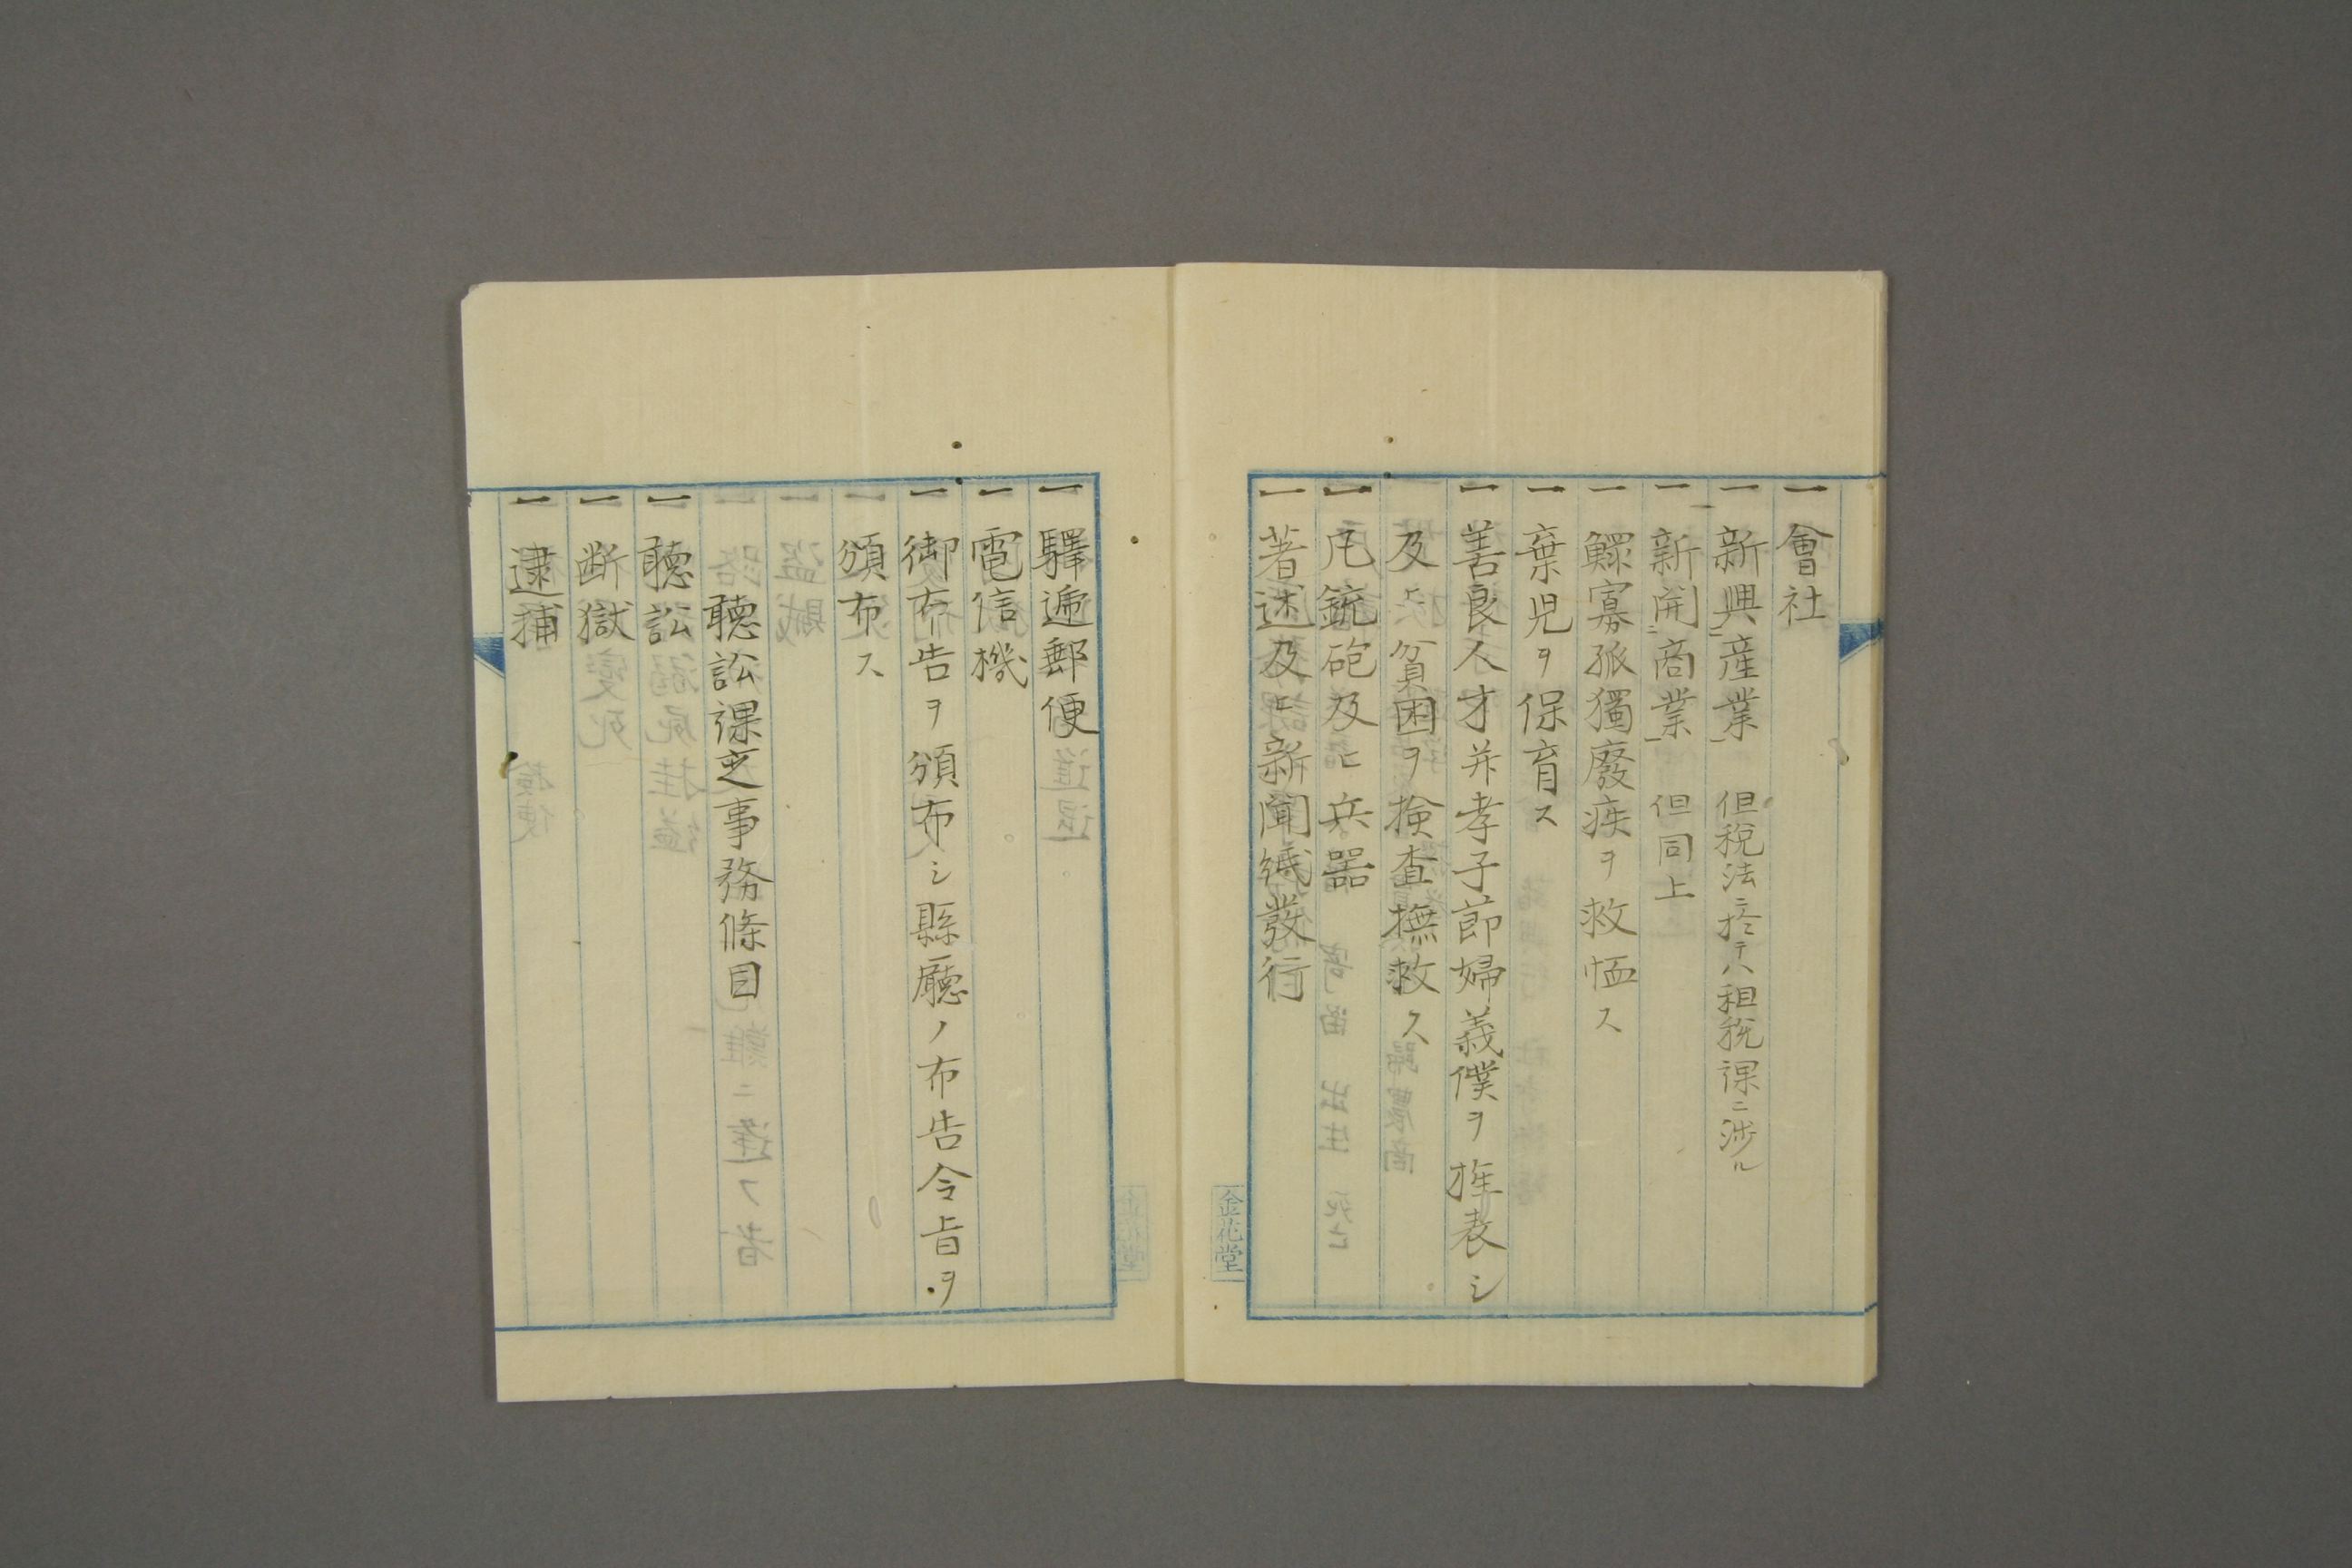 一 會社
一 新興産業 但税法ニ於テハ租税課ニ渉ル
一 新開商業 但同上
一 鰥寡孤獨廢疾ヲ救恤ス
一 棄児ヲ保育ス
一 善良人才并孝子節婦義僕ヲ旌表シ
及ヒ貧困ヲ検査撫救ス
一 大銃砲及ヒ兵器
一 著述及ヒ新聞紙發行
金花堂
一 驛逓郵便
一 電信機
一 御布告ヲ頒布シ縣廳ノ布告令旨ヲ
頒布ス
聴訟課之事務條目
一 聴訟
一 断獄
一 逮捕